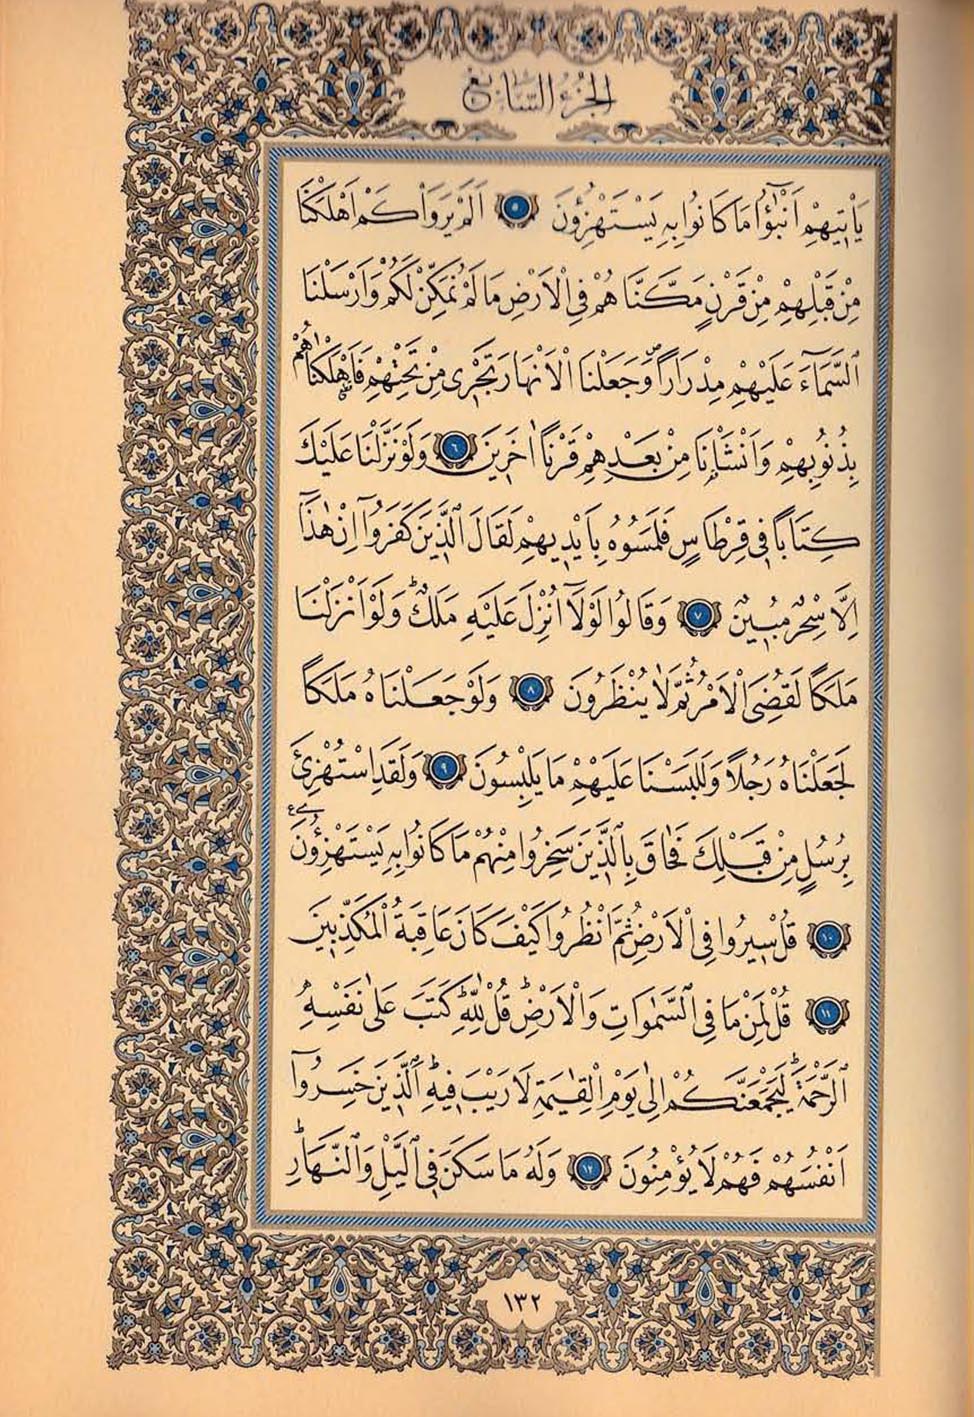 الجزء السابع
يَأْتِيهِمْ اَنْبٰٓؤُا مَا كَانُوا بِهِ يَسْتَهْزِؤُ۫نَ ٥ اَلَمْ يَرَوْا كَمْ اَهْلَكْنَا
مِنْ قَبْلِهِمْ مِنْ قَرْنٍ مَكَّنَّا هُمْ فِى الْاَرْضِ مَا لَمْ نُمَكِّنْ لَكُمْ وَاَرْسَلْنَا
السَّمَٓاءَ عَلَيْهِمْ مِدْرَارًاۖ وَجَعَلْنَا الْاَنْهَارَ تَجْرِى مِنْ تَحْتِهِمْ فَاَهْلَكْنَاهُمْ
بِذُنُوبِهِمْ وَاَنْشَاْنَا مِنْ بَعْدِهِمْ قَرْنًا اٰخَرِينَ ٦ وَلَوْ نَزَّلْنَا عَلَيْكَ
كِتَابًا فِى قِرْطَاسٍ فَلَمَسُوهُ بِاَيْدِيهِمْ لَقَالَ الَّذِينَ كَفَرُٓوا اِنْ هٰذَٓا
اِلَّا سِحْرٌ مُبِينٌ ٧ وَقَالُوا لَوْلَٓا اُنْزِلَ عَلَيْهِ مَلَكٌۜ وَلَوْ اَنْزَلْنَا
مَلَكًا لَقُضِىَ الْاَمْرُ ثُمَّ لَا يُنْظَرُونَ ٨ وَلَوْ جَعَلْنَاهُ مَلَكًا
لَجَعَلْنَاهُ رَجُلًا وَلَلَبَسْنَا عَلَيْهِمْ مَا يَلْبِسُونَ ٩ وَلَقَدِ اسْتُهْزِئَ
بِرُسُلٍ مِنْ قَبْلِكَ فَحَاقَ بِالَّذِينَ سَخِرُوا مِنْهُمْ مَا كَانُوا بِهِ يَسْتَهْزِؤُ۫نَ
١٠ قُلْ سِيرُوا فِى الْاَرْضِ ثُمَّ انْظُرُوا كَيْفَ كَانَ عَاقِبَةُ الْمُكَذِّبِينَ
١١ قُلْ لِمَنْ مَا فِى السَّمٰوَاتِ وَالْاَرْضِۜ قُلْ لِلّٰهِۜ كَتَبَ عَلٰى نَفْسِهِ
الرَّحْمَةَۜ لَيَجْمَعَنَّكُمْ اِلٰى يَوْمِ الْقِيٰمَةِ لَا رَيْبَ فِيهِۜ اَلَّذِينَ خَسِرُٓوا
اَنْفُسَهُمْ فَهُمْ لَا يُؤْمِنُونَ ١٢ وَلَهُ مَا سَكَنَ فِى الَّيْلِ وَالنَّهَارِۜ
١٣٢